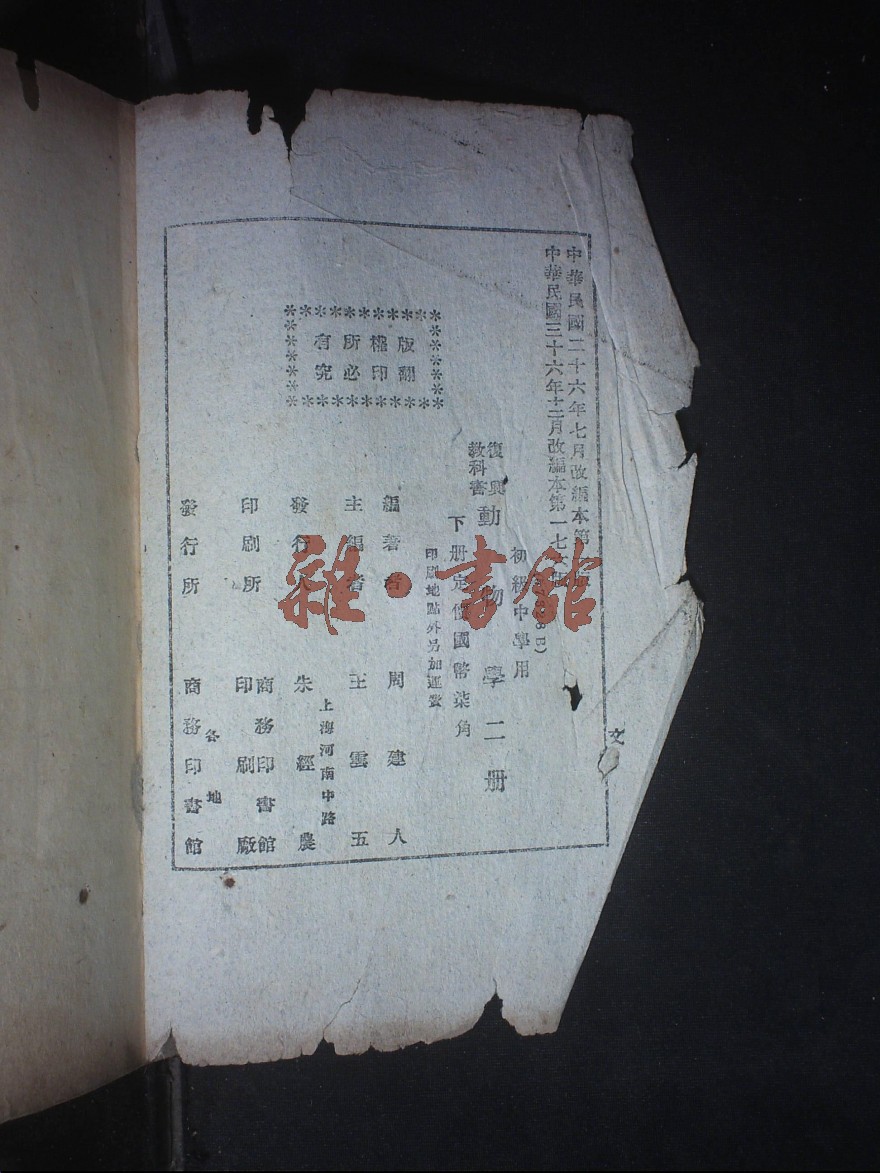 中華民國二十六年七月改編本第
中華民國三十六年十二月改編本第一七
8B)
初級中學用
復興
教科書
動物學二册
下册定價國幣柒角
印刷地點外另加運費
版權所有
翻印必究
編著者 周建人
主編者 王雲五
上海河南中路
發行人 朱經農
印刷所 商務印書館
印刷廠
各地
發行所 商務印書館
文
雜·書館